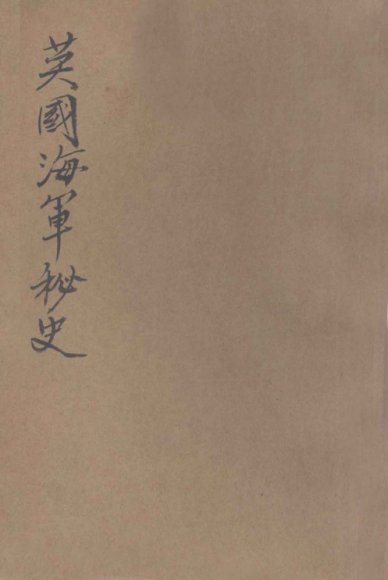 英國海軍秘史